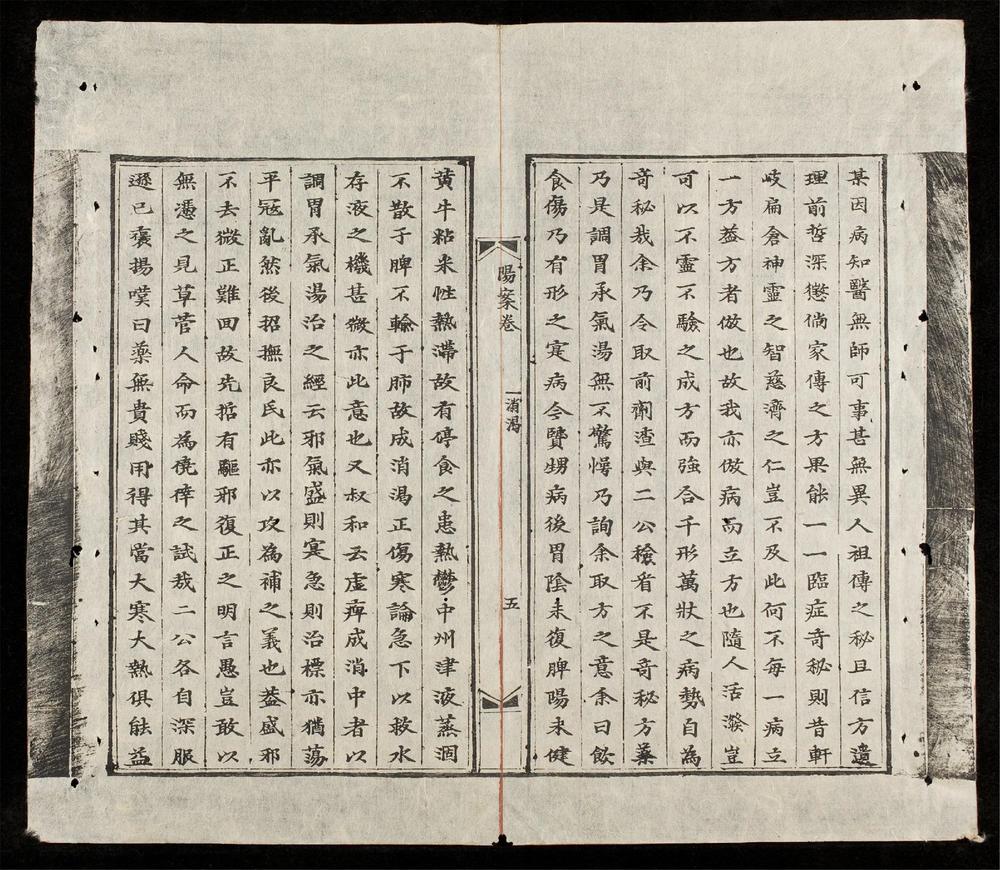 某因病知醫無師可事甚無異人祖傳之秘且信方遺
理前哲深懲倘家傳之方果能一一臨症奇秘則昔軒
岐扁倉神靈之智慈濟之仁豈不及此何不每一病立
一方葢方者倣也故我亦倣病而立方也隨人活潑豈
可以不靈不驗之成方而強合千形萬狀之病勢自為
奇秘哉余乃令取前劑渣與二公檢省不是奇秘方藥
乃是調胃承氣湯無不驚愕乃詢余取方之意余曰飲
食傷乃有形之寔病令賢甥病後胃陰未復脾陽未健
陽案卷
一消渴
五
黄牛粘米性熱滯故有停食之患熱鬱中州津液蒸涸
不散于脾不輸于肺故成消渴正傷寒論急下以救水
存液之機甚微亦此意也又叔和云虛痺成消中者以
調胃承氣湯治之經云邪氣盛則寔急則治標亦猶蕩
平冦亂然後招撫良民此亦以攻為補之義也葢盛邪
不去微正難回故先哲有驅邪復正之明言愚豈敢以
無憑之見草菅人命而為僥倖之試哉二公各自深服
遜已褒揚嘆曰藥無貴賤用得其當大寒大熱俱能益